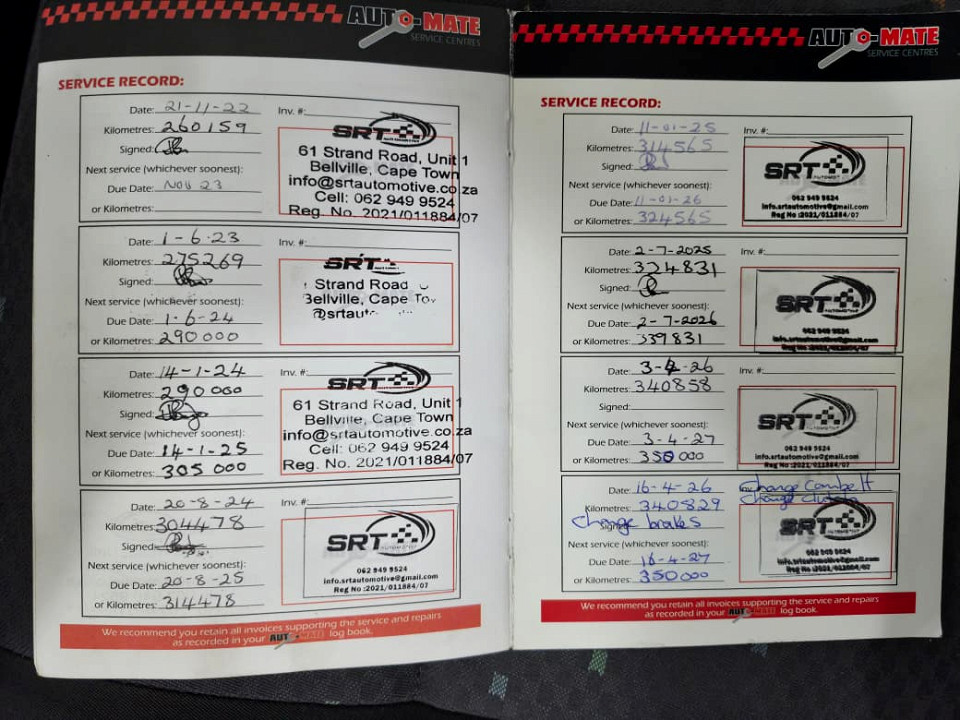 AUTO-MATE
SERVICE CENTRES
SERVICE RECORD:
Date: 21-11-22 Inv. #:
Kilometres: 260159
Signed:
Next service (whichever soonest):
Due Date: Nov 23
or Kilometres:
SRT
61 Strand Road, Unit 1
Bellville, Cape Town
info@srtautomotive.co.za
Cell: 062 949 9524
Reg. No. 2021/011884/07
Date: 1-6-23 Inv. #:
Kilometres: 275269
Signed:
Next service (whichever soonest):
Due Date: 1-6-24
or Kilometres: 290000
SRT
Strand Road
Bellville, Cape Tow
@srtaut
Date: 14-1-24 Inv. #:
Kilometres: 290000
Signed:
Next service (whichever soonest):
Due Date: 14-1-25
or Kilometres: 305 000
SRT
61 Strand Road, Unit 1
Bellville, Cape Town
info@srtautomotive.co.za
Cell: 062 949 9524
Reg. No. 2021/011884/07
Date: 20-8-24 Inv. #:
Kilometres: 304478
Signed:
Next service (whichever soonest):
Due Date: 20-8-25
or Kilometres: 314478
SRT
AUTOMOTIVE
062 949 9524
info.srtautomotive@gmail.com
Reg No :2021/011884/07
We recommend you retain all invoices supporting the service and repairs
as recorded in your AUTO-MATE log book.
AUTO-MATE
SERVICE CENTRES
SERVICE RECORD:
Date: 11-01-25 Inv. #:
Kilometres: 314565
Signed:
Next service (whichever soonest):
Due Date: 11-01-26
or Kilometres: 324565
SRT
AUTOMOTIVE
062 949 9524
info.srtautomotive@gmail.com
Reg No :2021/011884/07
Date: 2-7-2025 Inv. #:
Kilometres: 324831
Signed:
Next service (whichever soonest):
Due Date: 2-7-2026
or Kilometres: 339831
SRT
AUTOMOTIVE
062 949 9524
info.srtautomotive@gmail.com
Reg No :2021/011884/07
Date: 3-4-26 Inv. #:
Kilometres: 340858
Signed:
Next service (whichever soonest):
Due Date: 3-4-27
or Kilometres: 350000
SRT
AUTOMOTIVE
062 949 9524
info.srtautomotive@gmail.com
Reg No :2021/011884/07
Date: 16-4-26 Inv. change Cambelt
Kilometres: 340829 change
Signed: change brakes
Next service (whichever soonest):
Due Date: 16-4-27
or Kilometres: 350000
SRT
AUTOMOTIVE
062 949 9524
info.srtautomotive@gmail.com
Reg No :2021/011884/07
We recommend you retain all invoices supporting the service and repairs
as recorded in your AUTO-MATE log book.